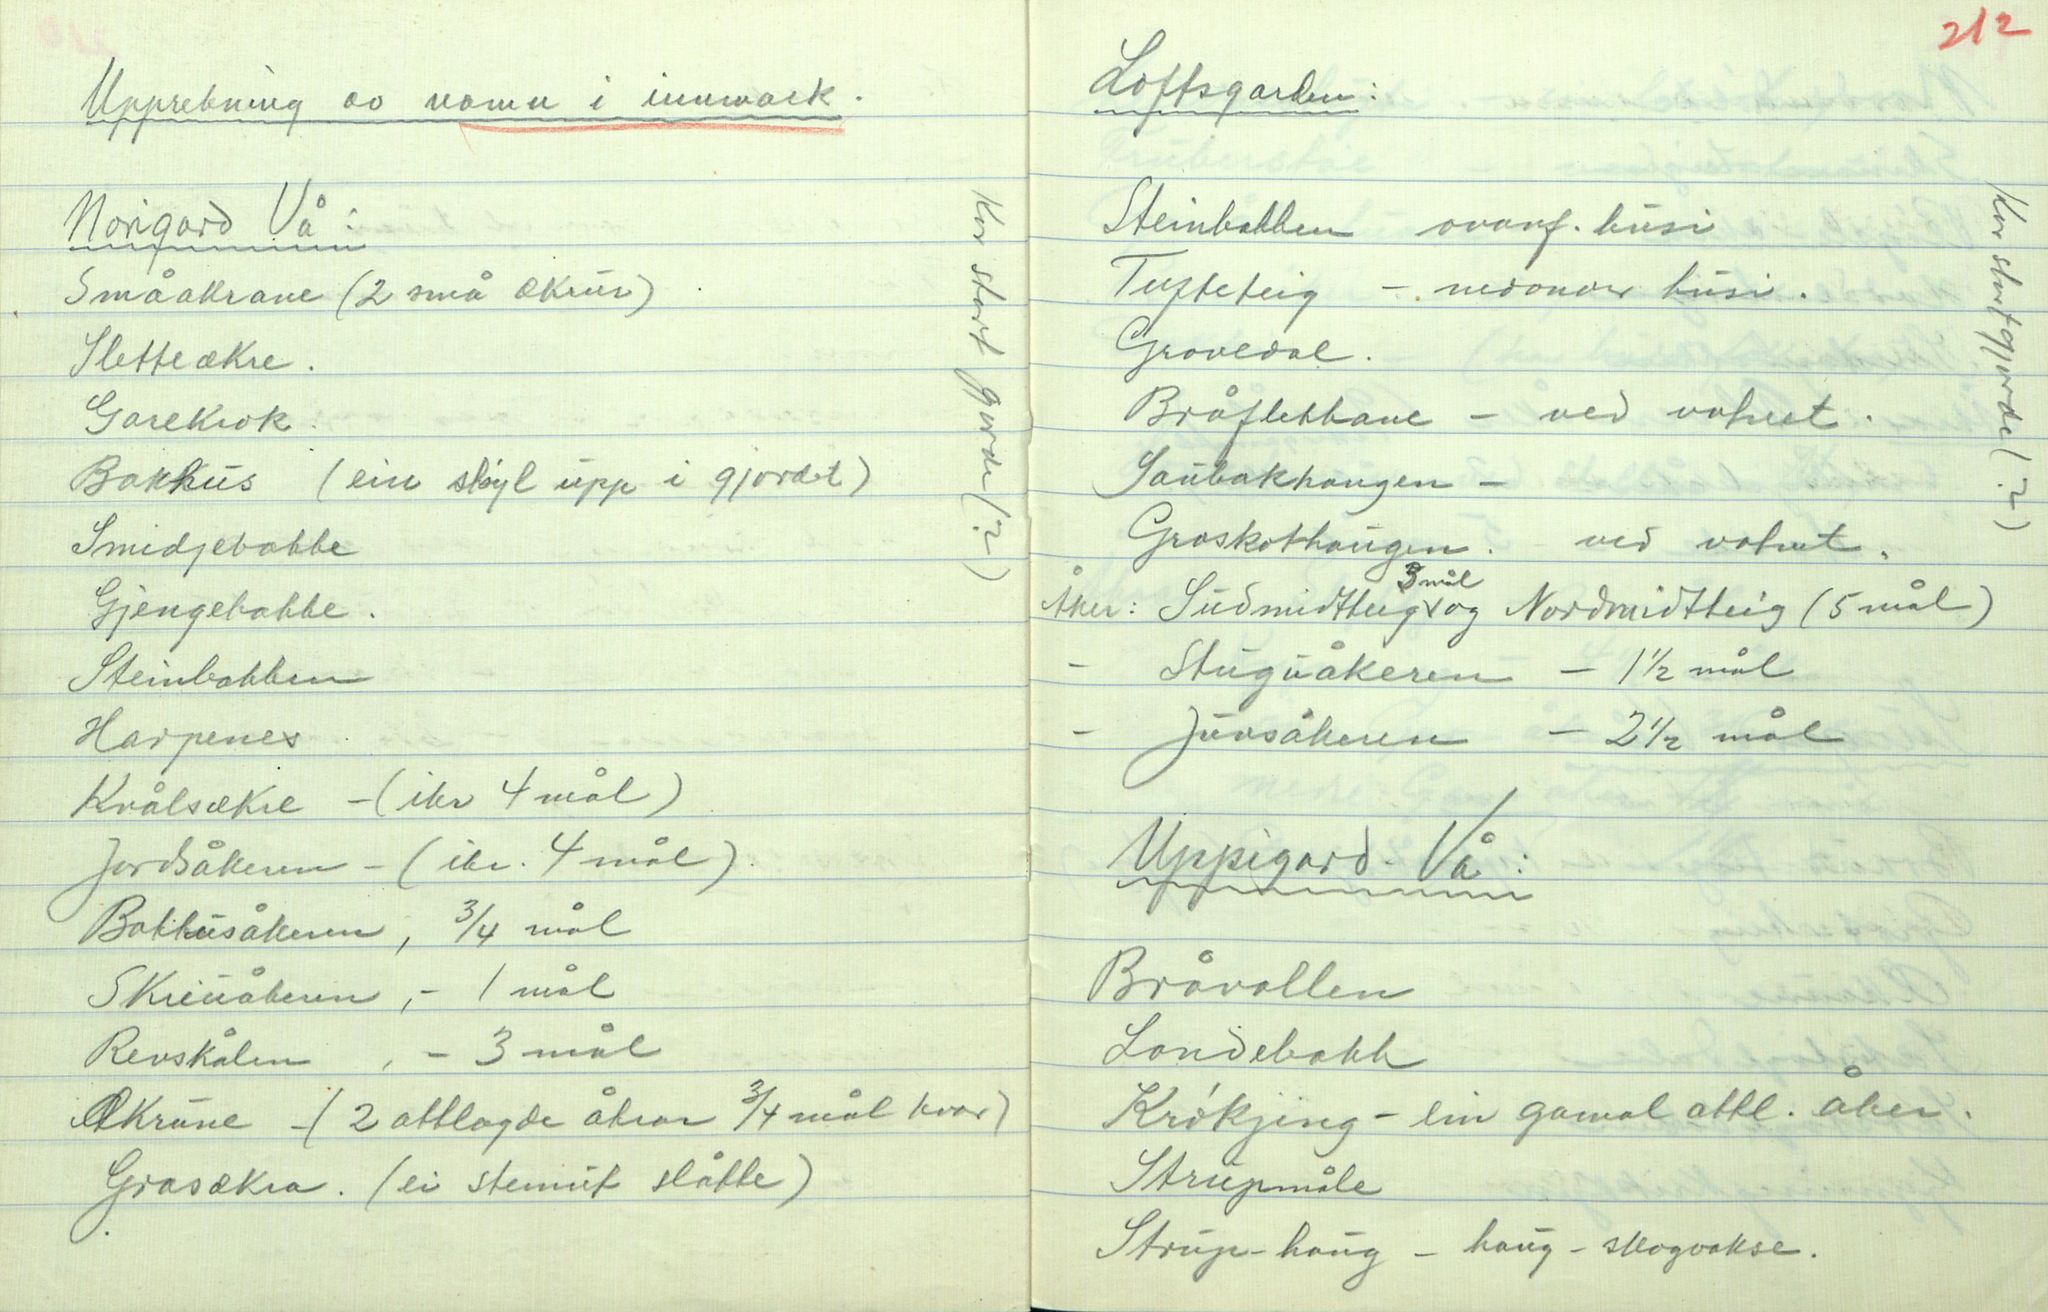 Upprekning av namn i innmark.
Norigard Vå:
Småakrane (2 små ækrur)
Sletteækre.
Garekrok.
Bakkus (ein skyl upp i gjordet)
Smidjebakke
Gjengebakke.
Steinbakken
Harpenes
Kvålsækre - (ikr 4 mål)
Jordsåkeren - (ikr. 4 mål)
Bakkusåkeren, 3/4 mål
Skreuåkeren, - 1 mål
Revskålen, - 3 mål
Ækrune - (2 attlagde åkrar 3/4 mål kvar)
Grasækra. (ei stenut slåtte)
Kor stort gjorde (?)
212
Loftsgarden:
Steinbakken ovanf. husi
Tufteteig - nedander husi.
Grovedal.
Bråflekkane - ved vatnet.
Saubakhaugen -
Graskothaugen. ved vatnet.
Åker: Sudmidtteig 3 mål og Nordmidtteig (5 mål)
- Stuguåkeren - 1 1/2 mål
- Juvsåkeren - 2 1/2 mål
Uppigard - Vå:
Bråvollen
Landebakk
Krókjing - ein gamal attl. åker.
Strupmåle
Strup-haug - haug - skogvakse.
Kor stort gjorde (?)